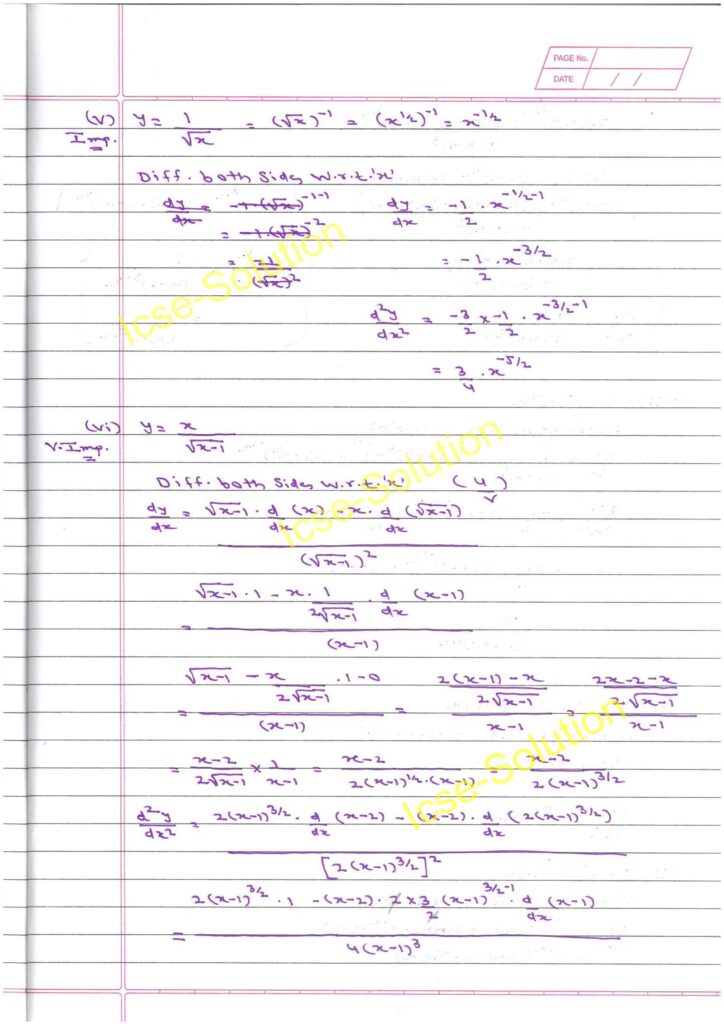 PAGE No.
DATE / /
(v) y = 1/√x = (√x)^-1 = (x^1/2)^-1 = x^-1/2
Imp.
Diff. both sides w.r.t. 'x'
dy/dx = -1·(√x)^-1-1    dy/dx = -1/2 · x^-1/2-1
= -1·(√x)^-2
= -1/(√x)^2    = -1/2 · x^-3/2
d²y/dx² = -3/2 × -1/2 · x^-3/2-1
= 3/4 · x^-5/2
(vi) y = x/√x-1
V.Imp.
Diff. both sides w.r.t. 'x' (u/v)
dy/dx = √x-1 · d/dx (x) - x · d/dx (√x-1) / (√x-1)²
= √x-1 · 1 - x · 1/2√x-1 · d/dx (x-1) / (x-1)
= √x-1 - x/2√x-1 · 1-0 / (x-1) = 2(x-1)-x/2√x-1 / x-1 = 2x-2-x/2√x-1 / x-1
= x-2/2√x-1 × 1/x-1 = x-2/2(x-1)^1/2·(x-1) = x-2/2(x-1)^3/2
d²y/dx² = 2(x-1)^3/2 · d/dx (x-2) - (x-2) · d/dx (2(x-1)^3/2) / [2(x-1)^3/2]²
= 2(x-1)^3/2 · 1 - (x-2) · 2 × 3/2 (x-1)^3/2-1 · d/dx (x-1) / 4(x-1)³
Icse-Solution
Icse-Solution
Icse-Solution